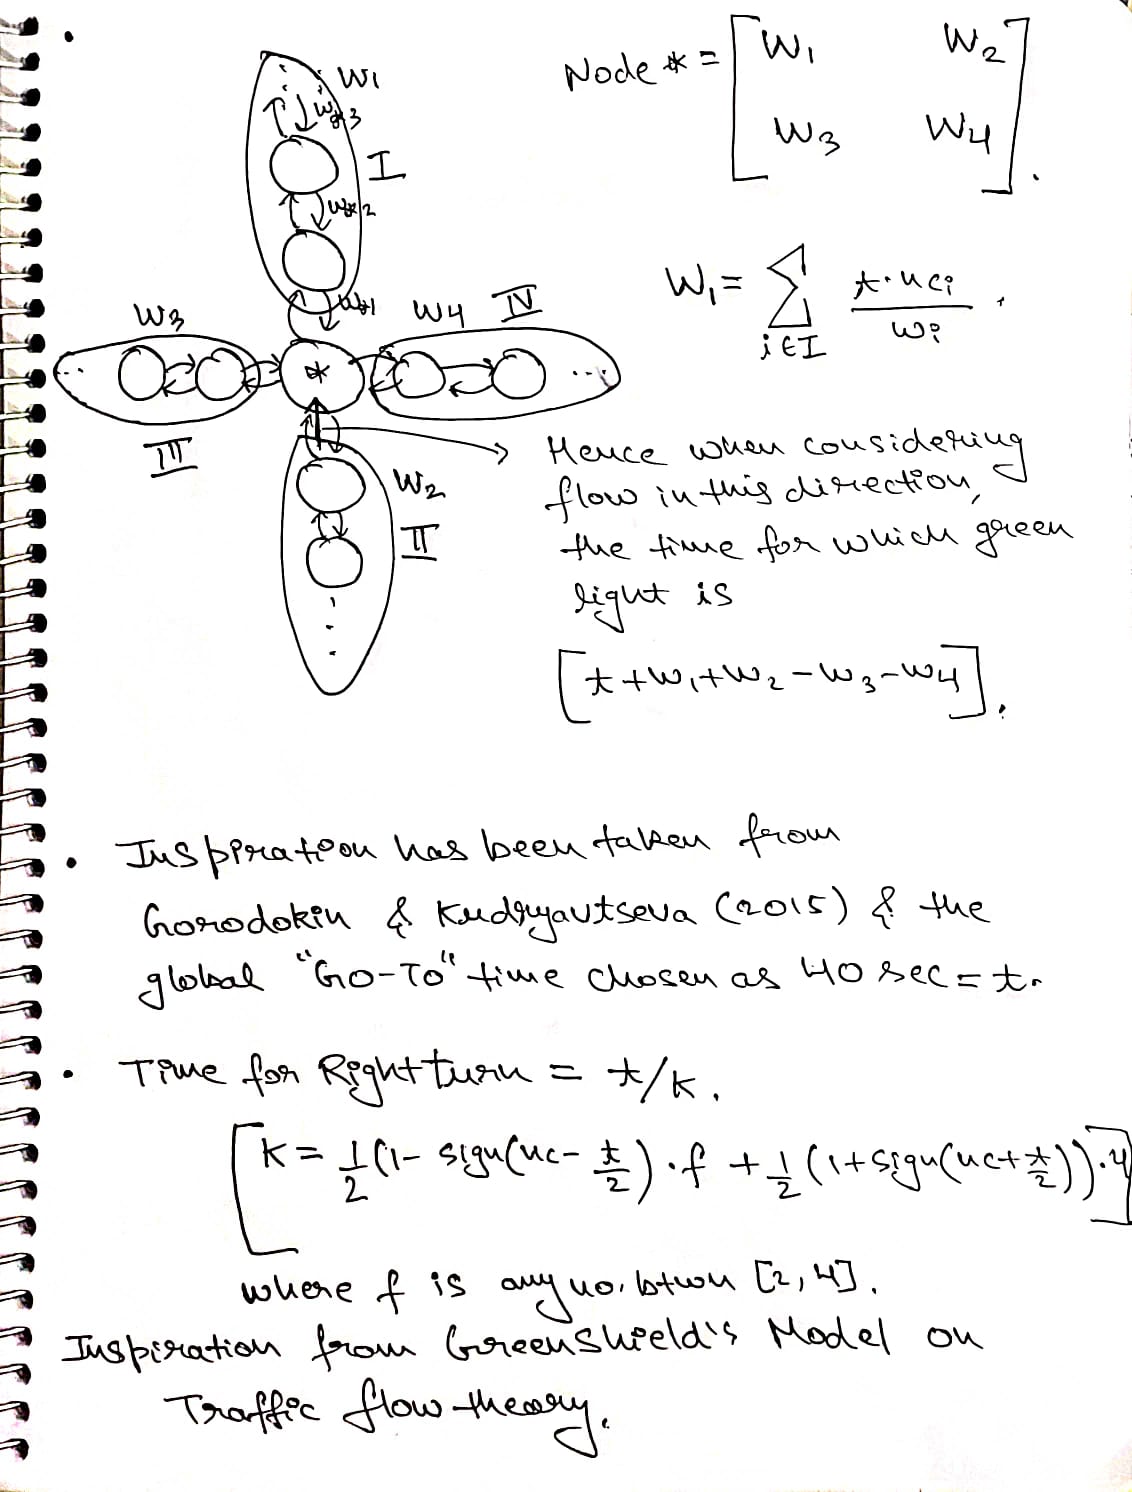 W1
W*3
I
W*2
W*1
Node * = [W1 W2
W3 W4].
W1 = Σ i∈I t·uci / wi .
W3
W4 IV
*
III
W2
II
Hence when considering
flow in this direction,
the time for which green
light is
[t+W1+W2-W3-W4].
• Inspiration has been taken from
Gorodokin & Kudryavtseva (2015) & the
global "Go-To" time chosen as 40 sec = t.
• Time for Right turn = t/k.
[k = 1/2 (1- sign(uc- t/2)·f + 1/2 (1+sign(uc+ t/2))·4]
where f is any no. btwn [2,4].
Inspiration from Greenshield's Model on
Traffic flow theory.